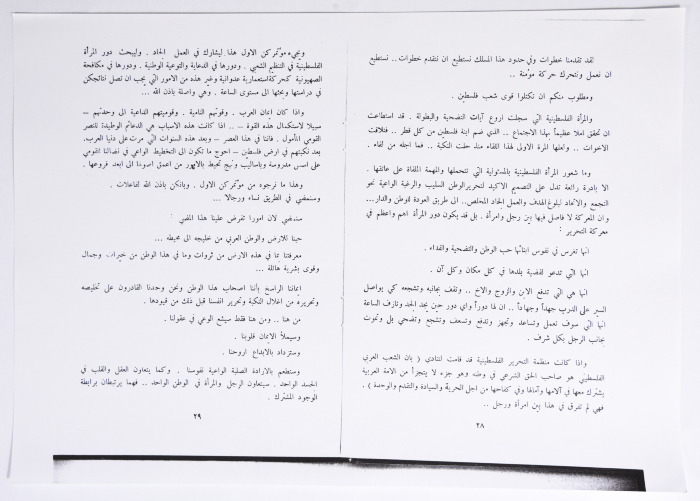 لقد تقدمنا خطوات وفي حدود هذا المسلك نستطيع ان نتقدم خطوات.. نستطيع
ان نعمل ونتحرك حركة مؤمنة ..
ومطلوب منكم ان تكتلوا قوى شعب فلسطين .
والمرأة الفلسطينية التي سجلت اروع آيات التضحية والبطولة . قد استطاعت
ان تحقق املا عظيماً بهذا الاجتماع .. الذي ضم ابنة فلسطين من كل قطر .. فتلاقت
الاخوات .. ولعلها المرة الاولى لهذا اللقاء منذ حلت النكبة .. فما اجله من لقاء .
وما شعور المرأة الفلسطينية بالمسئولية التي تتحملها والمهمة الملقاة على عاتقها .
الا بادرة رائعة تدل على التصميم الاكيد لتحرير الوطن السليب والرغبة الواعية نحو
التجمع والاتحاد لبلوغ الهدف والعمل الجاد المخلص.. الى طريق العودة للوطن والدار...
وان المعركة لا فاصل فيها بين رجل وامرأة . بل قد يكون دور المرأة اهم واعظم في
معركة التحرير :
انها تغرس في نفوس ابنائها حب الوطن والتضحية والفداء .
انها التي تدعو لقضية بلدها في كل مكان وكل آن .
انها هي التي تدفع الابن والزوج والاخ .. وتقف بجانبه وتشجعه كي يواصل
السير على الدرب جهداً وجهاداً .. ان لها دوراً واي دور حين يجد الجد وتأزف الساعة
انها التي سوف تعمل وتساعد وتجهز وتدفع وتسعف وتشجع وتضحي بل وتموت
بجانب الرجل بكل شرف .
واذا كانت منظمة التحرير الفلسطينية قد قامت لتنادي ( بان الشعب العربي
الفلسطيني هو صاحب الحق الشرعي في وطنه وهو جزء لا يتجزأ من الامة العربية
يشترك معها في آلامها وآمالها وفي كفاحها من اجل الحرية والسيادة والتقدم والوحدة ) .
فهي لم تفرق في هذا بين امرأة ورجل ..
٢٨
ويجيء مؤتمركن الاول هذا ليشارك في العمل الجاد . وليبحث دور المرأة
الفلسطينية في التنظيم الشعبي . ودورها في الدعاية والتوعية الوطنية . ودورها في مكافحة
الصهيونية كحركة استعمارية عدوانية وغير هذه من الامور التي يجب ان تصل نتائجكن
في دراستها وبحثها الى مستوى الساعة . وهي واصلة باذن الله ...
واذا كان ايمان العرب . وقوتهم النامية . وقوميتهم الداعية الى وحدتهم –
سبيلا لاستكمال هذه القوة – .. اذا كانت هذه الاسباب هي الدعائم الوطيدة للنصر
القومي المأمول . فاننا في هذا العصر – وبعد هذه السنوات التي مرت على دنيا العرب.
بعد نكبتهم في ارض فلسطين – احوج ما تكون الى التخطيط الواعي في نضالنا القومي
على اسس مدروسة وباساليب ونهج تحيط بالامور من اعمق اصولها الى ابعد فروعها .
وهذا ما نرجوه من مؤتمركن الاول . وبانكن باذن الله لفاعلات .
وسنمضي في الطريق نساء ورجالا ...
سنمضي لان امورا تفرض علينا هذا المضي :
حبنا للارض والوطن العربي من خليجه الى محيطه ...
معرفتنا بما في هذه الارض من ثروات وما في هذا الوطن من خيرات وجمال
وقوى بشرية هائلة ...
ايماننا الراسخ بأننا اصحاب هذا الوطن ونحن وحدنا القادرون على تخليصه
وتحريره من اغلال النكبة وتحرير انفسنا قبل ذلك من قيودها .
من هنا .. ومن هنا فقط سيشع الوعي في عقولنا .
وسيملأ الايمان قلوبنا .
وستزداد بالابداع ارواحنا .
وستطعم بالارادة الصلبة الواعية نفوسنا . وكما يتعاون العقل والقلب في
الجسد الواحد . سيتعاون الرجل والمرأة في الوطن الواحد .. فهما يرتبطان برابطة
الوجود المشترك .
٢٩